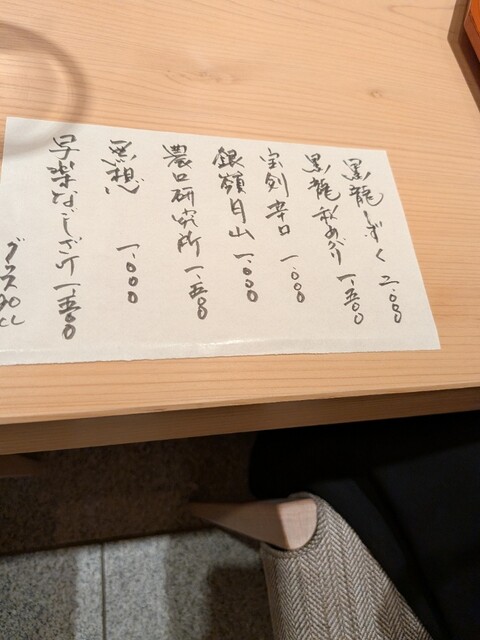 黒龍しずく 二、〇〇〇
黒龍秋あがり 一、五〇〇
宝剣辛口 一、〇〇〇
銀嶺月山 一、〇〇〇
農口研究所 一、五〇〇
無想 一、〇〇〇
写楽なごしざけ 一、五〇〇
グラス90cc